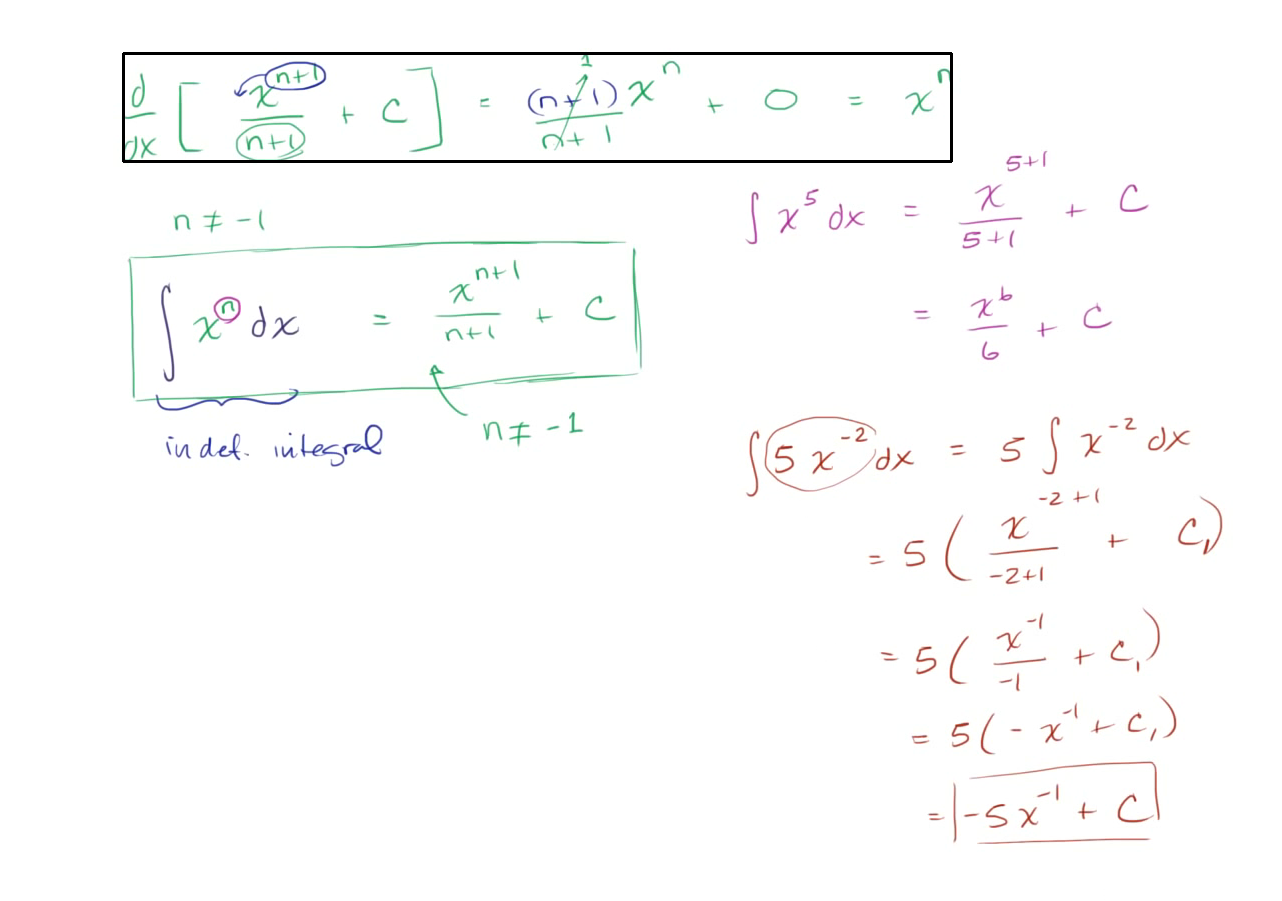 d/dx [ x^(n+1)/(n+1) + C ] = (n+1)x^n/(n+1) + 0 = x^n
1
n ≠ -1
∫ x^n dx = x^(n+1)/(n+1) + C
n ≠ -1
indef. integral
∫ x^5 dx = x^(5+1)/(5+1) + C
= x^6/6 + C
∫ 5 x^-2 dx = 5 ∫ x^-2 dx
= 5 ( x^(-2+1)/(-2+1) + C₁)
= 5 ( x^-1/-1 + C₁)
= 5 (- x^-1 + C₁)
= -5x^-1 + C